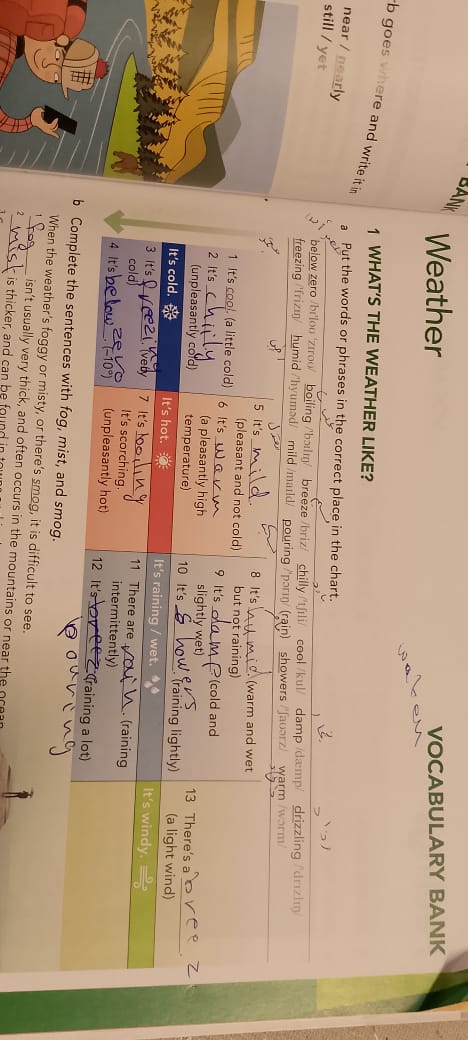 rb goes where and write it in
near / nearly
still / yet
BANK
Weather
VOCABULARY BANK
1 WHAT'S THE WEATHER LIKE?
a Put the words or phrases in the correct place in the chart.
below zero /bɪˈloʊ ˈzɪroʊ/ boiling /ˈbɔɪlɪŋ/ breeze /briz/ chilly /ˈtʃɪli/ cool /kul/ damp /dæmp/ drizzling /ˈdrɪzlɪŋ/
freezing /ˈfrizɪŋ/ humid /ˈhyuməd/ mild /maɪld/ pouring /ˈpɔrɪŋ/ (rain) showers /ˈʃaʊərz/ warm /wɔrm/
1 It's cool. (a little cold)
2 It's chilly
(unpleasantly cold)
It's cold.
3 It's freezing (very
cold)
4 It's below zero (-10°)
5 It's mild.
(pleasant and not cold)
6 It's warm
(a pleasantly high
temperature)
It's hot.
7 It's boiling
It's scorching.
(unpleasantly hot)
8 It's humid. (warm and wet
but not raining)
9 It's damp (cold and
slightly wet)
10 It's showers. (raining lightly)
It's raining / wet.
11 There are rain. (raining
intermittently)
12 It's breez (raining a lot)
pouring
13 There's a breez
(a light wind)
It's windy.
b Complete the sentences with fog, mist, and smog.
When the weather's foggy or misty, or there's smog, it is difficult to see.
1 fog isn't usually very thick, and often occurs in the mountains or near the ocean.
2 mist is thicker, and can be found in